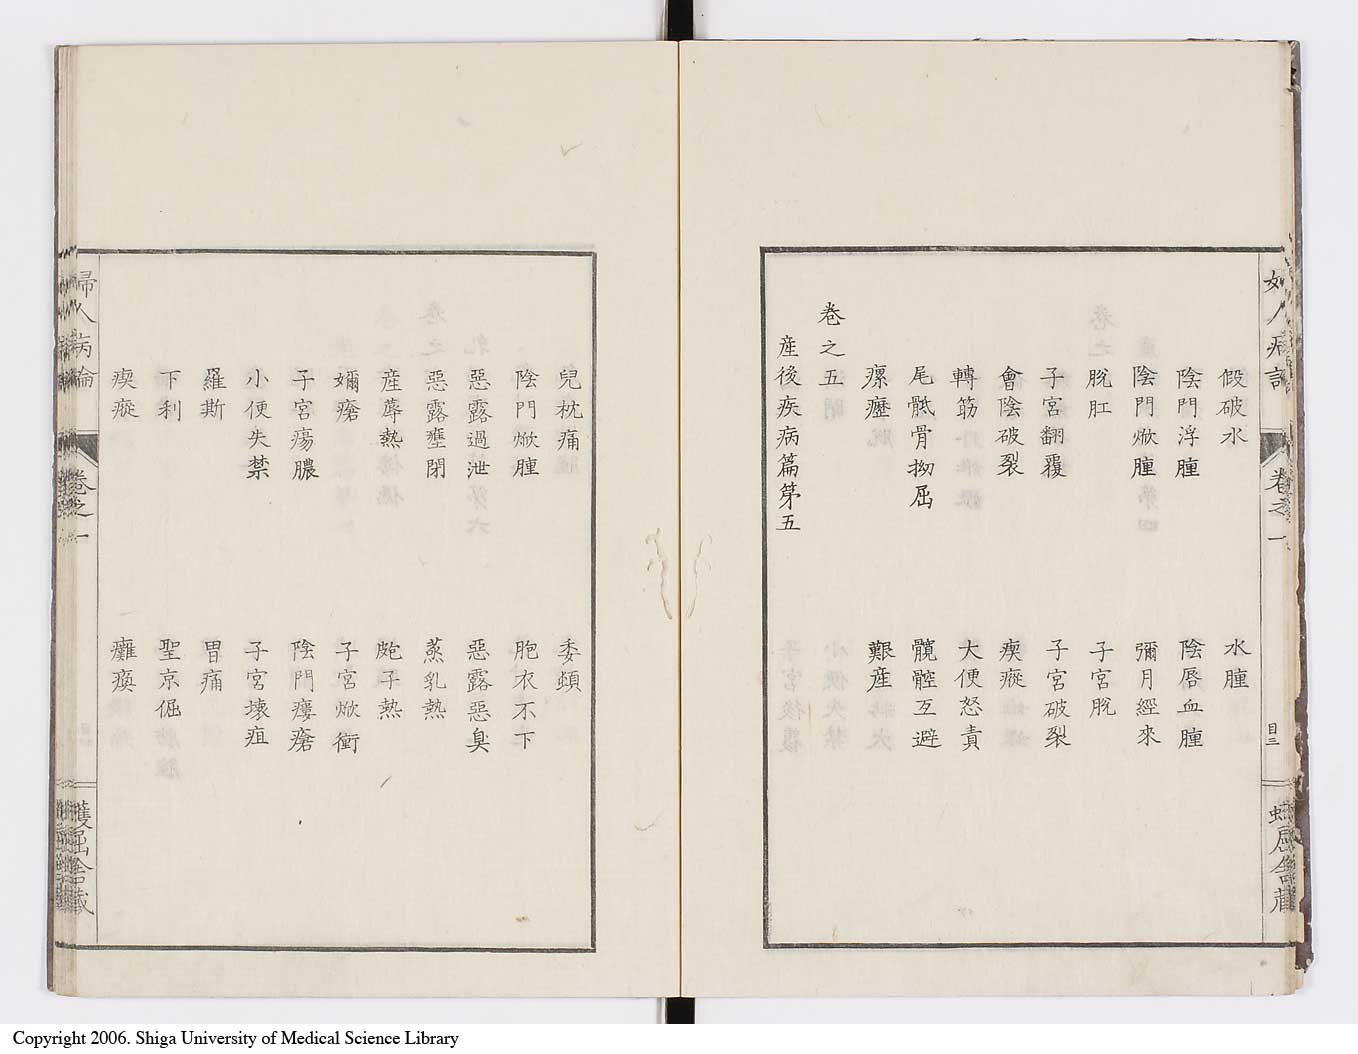 假破水 水腫
陰門浮腫 陰唇血腫
陰門焮腫 彌月經來
脫肛 子宮脫
子宮翻覆 子宮破裂
會陰破裂 瘈瘲
轉筋 大便怒責
尾骶骨拗屈 髖髂互避
瘰癧 艱產
卷之五
產後疾病篇第五
目三
卷之一
兒枕痛 委頓
陰門焮腫 胞衣不下
惡露過泄 惡露惡臭
惡露壅閉 蒸乳熱
產蓐熱
嬭瘡 子宮焮衝
子宮瘍膿 陰門瘻瘡
小便失禁 子宮壞疽
羅斯 胃痛
下利 聖京倔
瘈瘲 癱瘓
婦人病論
卷之一
蠖屈舍藏
Copyright 2006. Shiga University of Medical Science Library